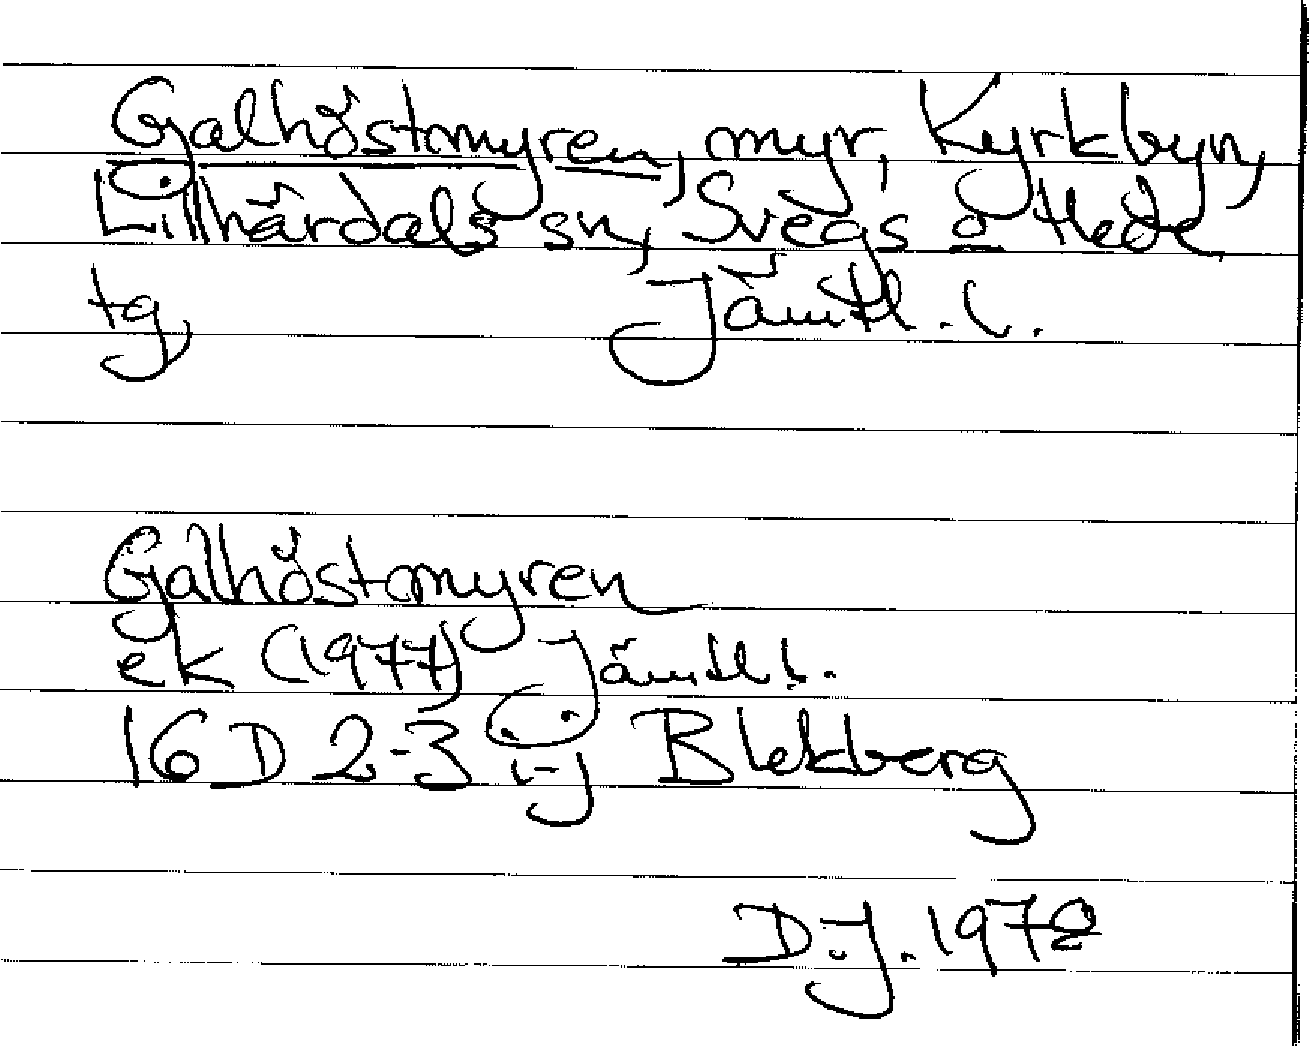 Galhöstmyren, myr, Kyrkbyn,
Lillhärdals sn, Svegs o Hede
tg, Jämtl. l.
Galhöstmyren
ek (1977) Jämtl l.
16 D 2-3 i-j Blekberg
D.J. 1978